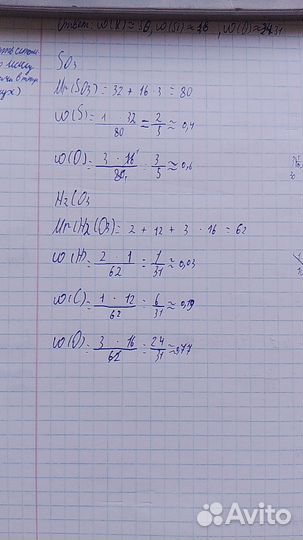 Ответ: ω(K)=
SO₃
Mr(SO₃) = 32 + 16 · 3 = 80
ω(S) = 1 · 32 / 80 = 2/5 ≈ 0,4
ω(O) = 3 · 16 / 80 = 3/5 ≈ 0,6
H₂CO₃
Mr(H₂CO₃) = 2 + 12 + 3 · 16 = 62
ω(H) = 2 · 1 / 62 = 1/31 ≈ 0,03
ω(C) = 1 · 12 / 62 = 6/31 ≈ 0,19
ω(O) = 3 · 16 / 62 = 24/31 ≈ 0,77
Avito